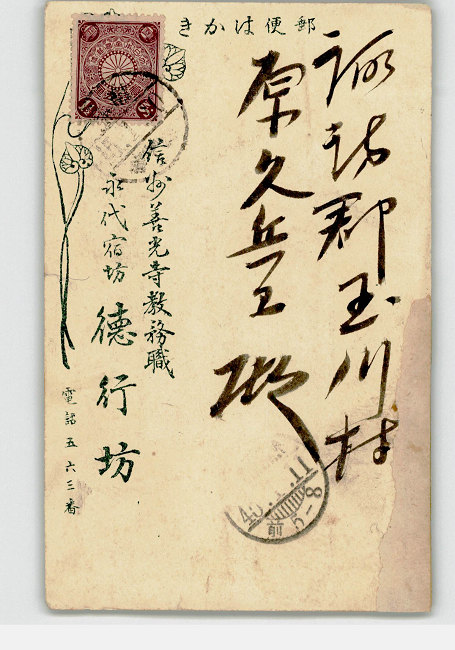 きかは便郵
諏訪郡玉川村
原久兵エ様
信州善光寺教務職
永代宿坊
徳行坊
電話五六三番
前5-8